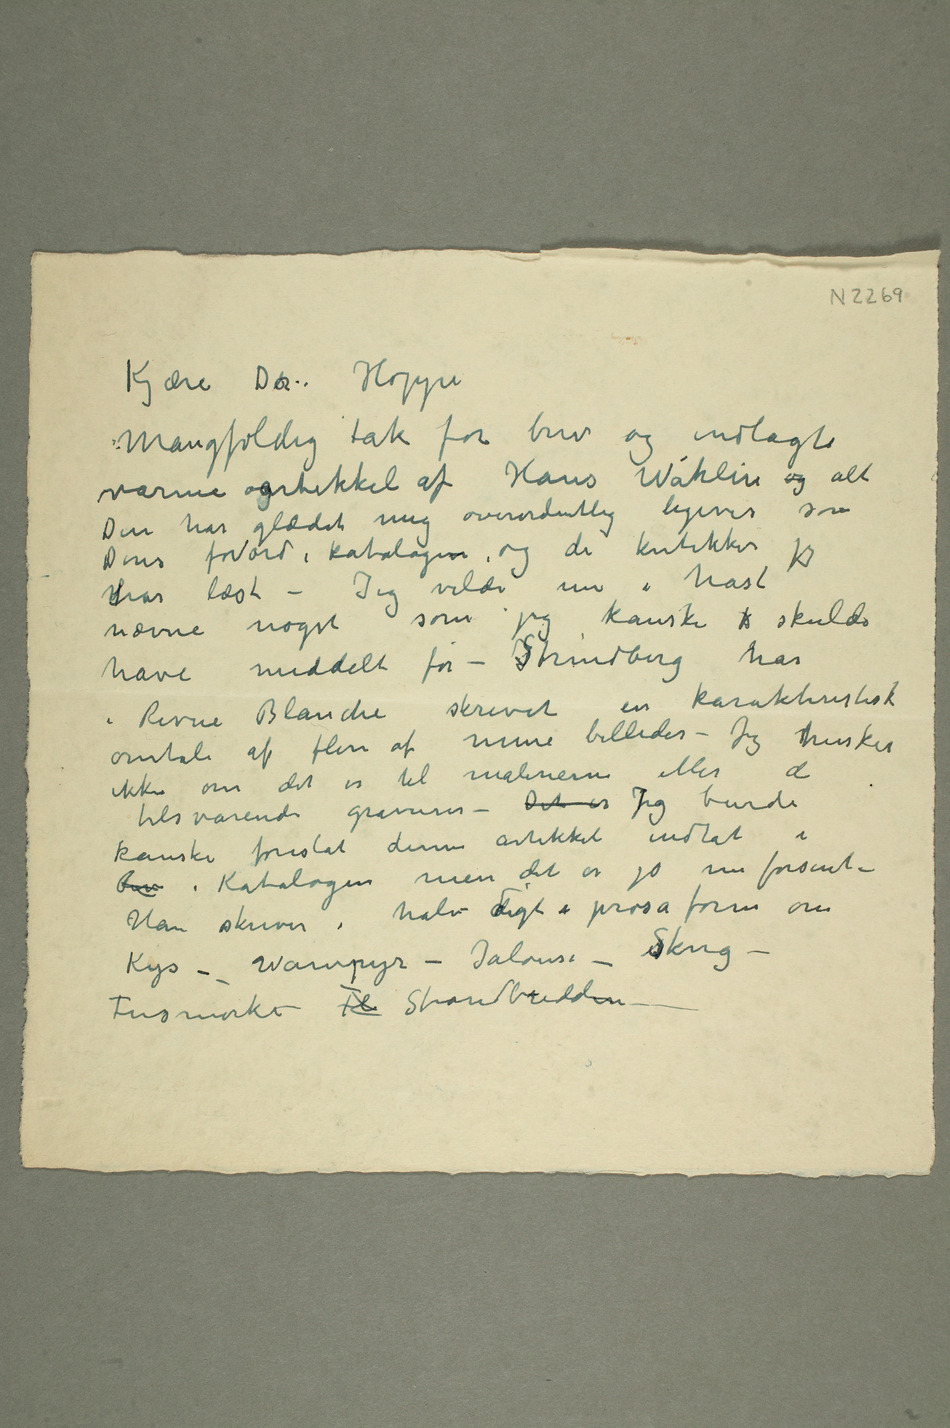 N 2269
Kjære Dr. Hoppe
Mangfoldig tak for brev og indlagte
varme artikkel af Hans Wåhlin og alt
Den har glædet mig overordentlig ligeves som
Deres forord i katalogen, og de kritikker jeg
har læst – Jeg vilde nu i hast
nævne noget som jeg kanske skulde
have meddelt før – Strindberg har
i Revue Blanche skrevet en karakteristisk
omtale af flere af mine billeder – Jeg husker
ikke om det er til malerierne eller de
tilsvarende gravurer – Det er Jeg burde
kanske foreslåt denne artikkel indtat i
i Katalogen men det er jo nu forsent –
Han skriver i halv digt i prosa form om
Kys – Wampyr – Jalousi – Skrig –
Tusmørke – Strandbredden –